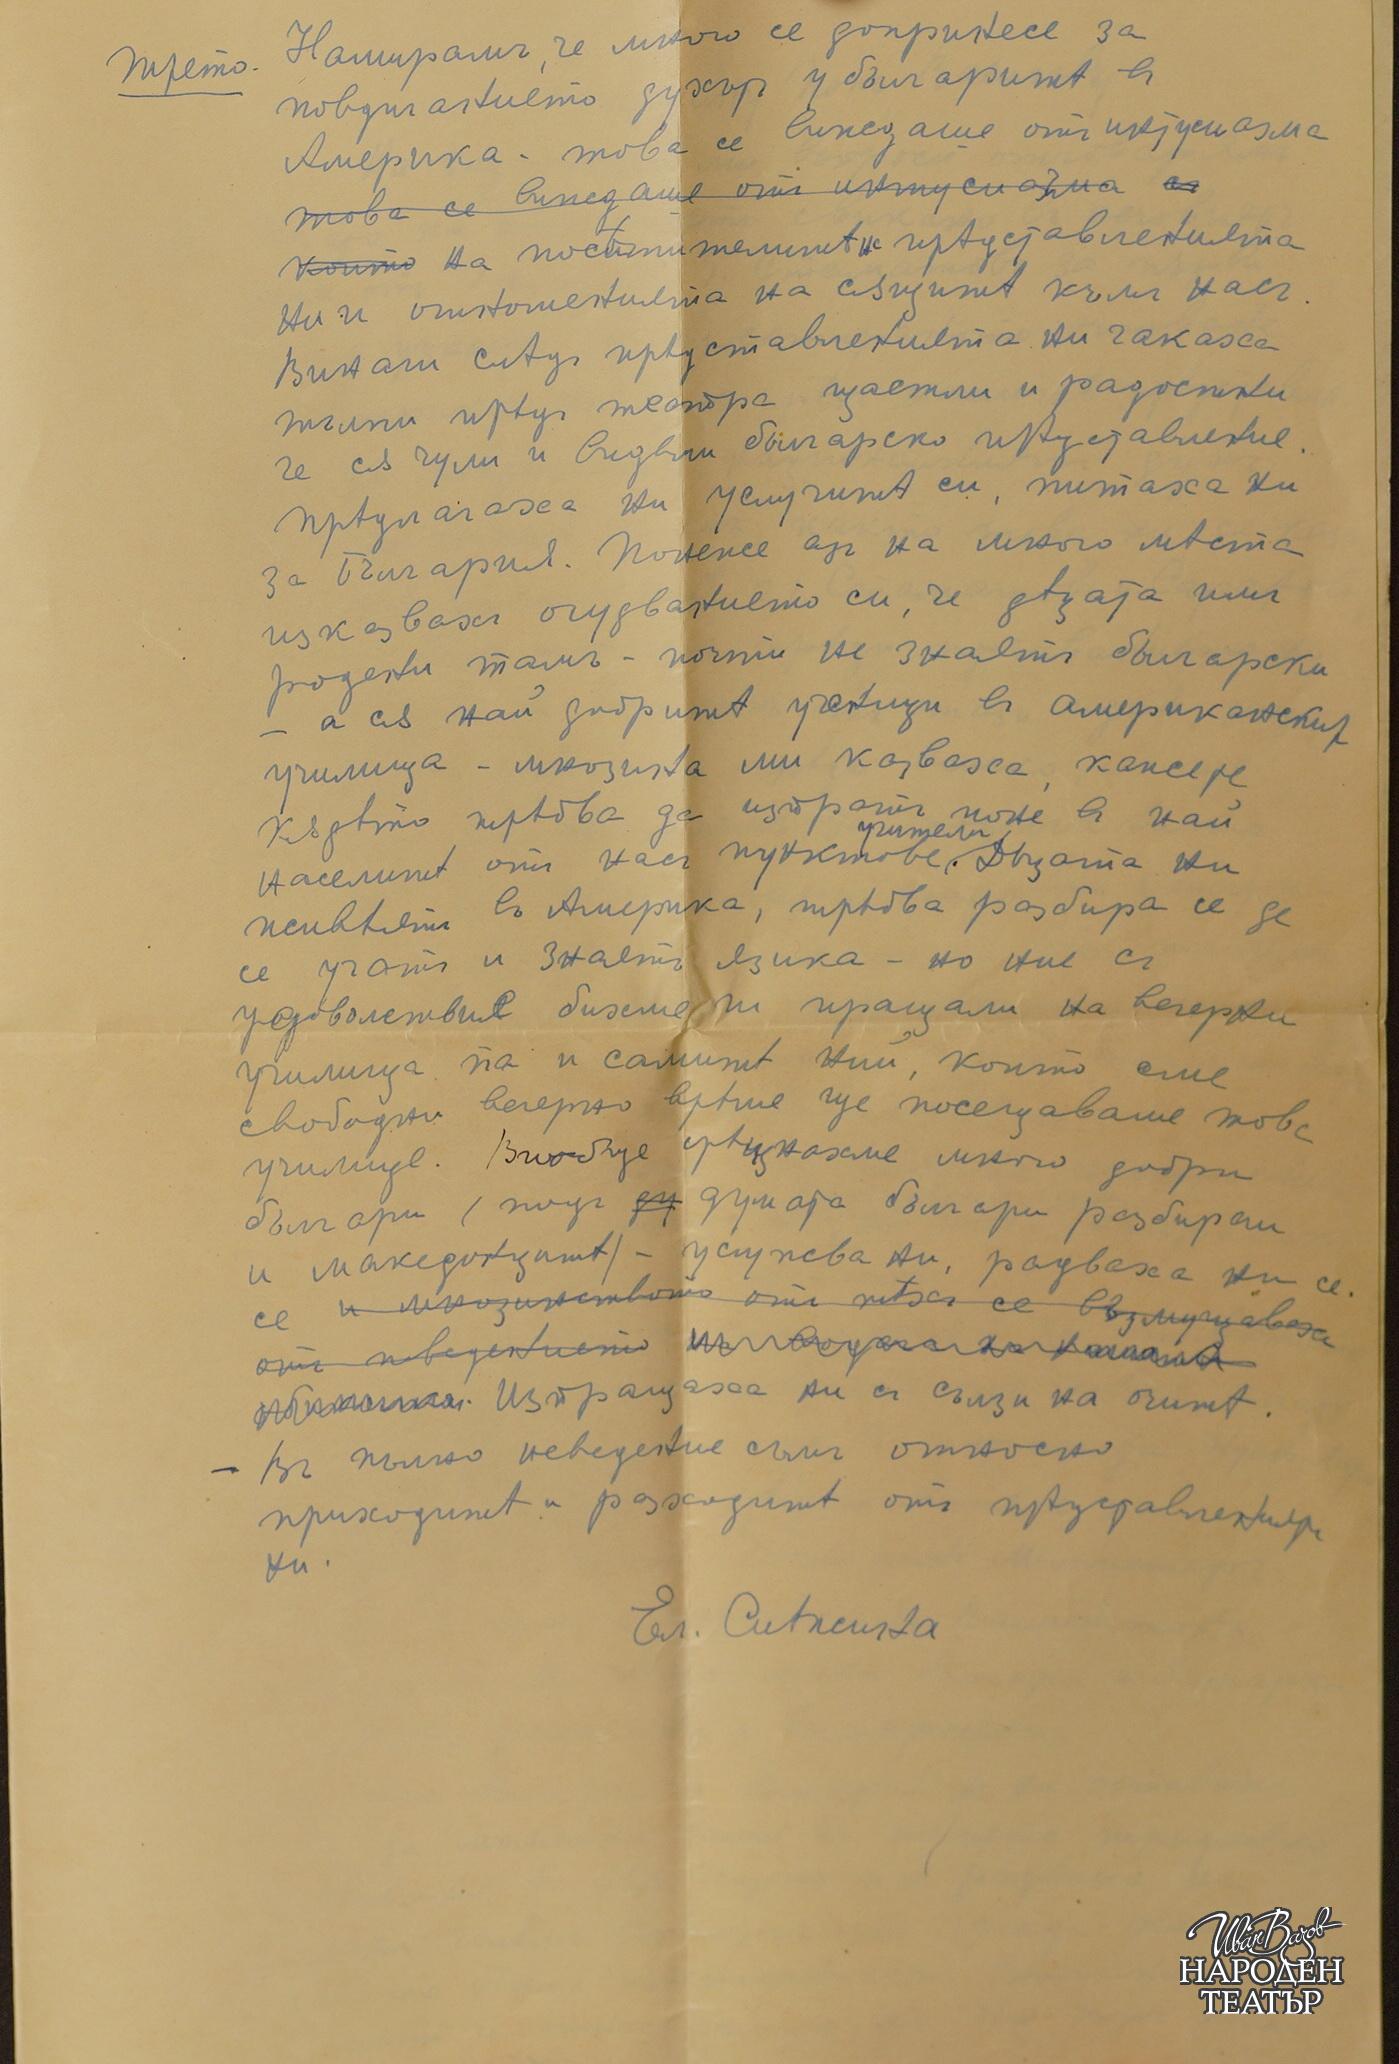 трето. Намирамъ, че много се допринесе за
повдиганието духъръ у българитѣ въ
Америка - това се виждаше отъ интусиазма
това се виждаше отъ интусиазма
които на посѣтителитѣ на прѣдставленията
ни и отношенията на сѫщитѣ къмъ насъ.
Винаги слѣдъ прѣдставленията ни чакаха
тълпи прѣдъ театра щастли и радостни
че сѫ чули и видѣли българско прѣдставление.
Прѣдлагаха ни услугитѣ си, питаха ни
за България. Понеже азъ на много мѣста
изказвахъ очудванието си, че дѣцата имъ
родени тамъ - почти не знаятъ български
- а сѫ най добритѣ ученици въ американскит
училища - мнозина ми казваха, какже че
кѫдѣто трѣбва да изпратъ поне въ най
населитѣ отъ насъ пунктове учители. Дѣцата ни
живѣятъ въ Америка, трѣбва разбира се де
се учатъ и знаятъ язика - но ние съ
удоволствие бихме ги пращали на вечерни
училища па и самитѣ ний, които сме
свободни вечерно врѣме ще посещаваме това
училище. Въобще срѣщнахме много добри
българи (подъ ду думата българи разбирам
и македонцитѣ) - услужваха ни, радваха ни се.
се и мнозинството отъ тѣхъ се възмущаваха
отъ поведението
Изпращаха ни съ сълзи на очитѣ.
- Въ пълно неведение съмъ относно
приходитѣ и разходитѣ отъ прѣдставленията
ни.
Ел. Снѣжина
Иван Вазов
НАРОДЕН
ТЕАТЪР